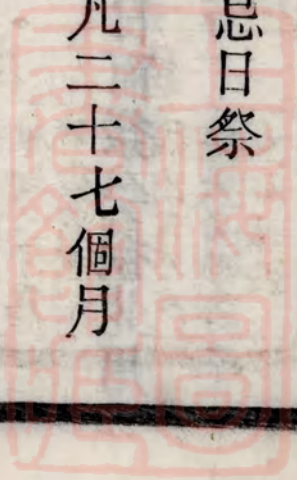 忌日祭
凡二十七個月